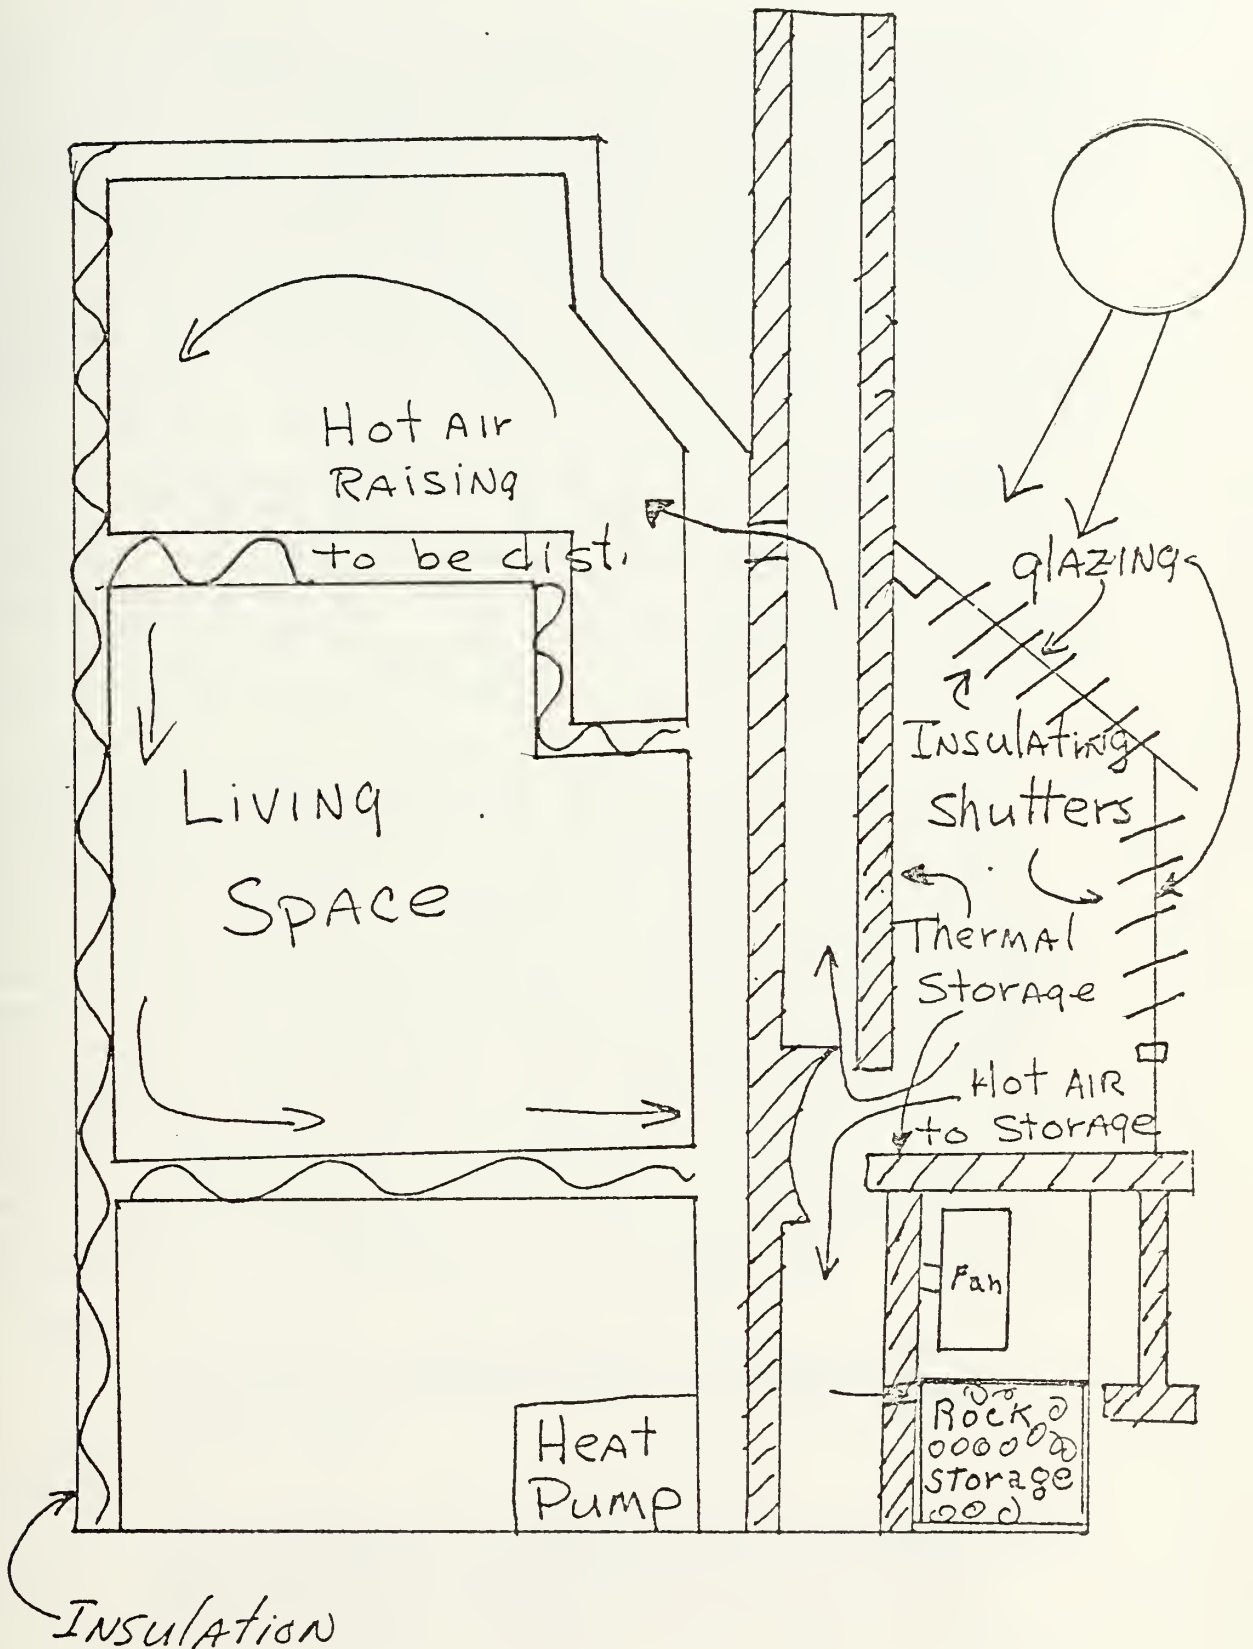 Hot Air
Raising
to be dist.
glazing
Insulating
Shutters
Living
Space
Thermal
Storage
Hot Air
to Storage
Fan
Rock
Storage
Heat
Pump
Insulation